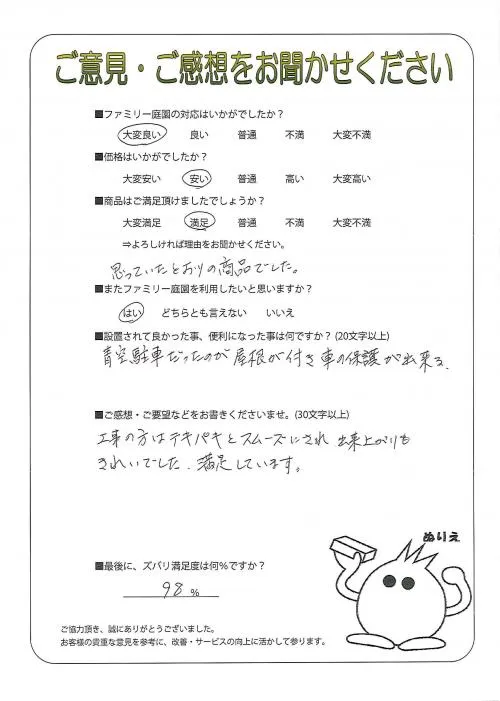 ご意見・ご感想をお聞かせください
■ファミリー庭園の対応はいかがでしたか?
大変良い 良い 普通 不満 大変不満
■価格はいかがでしたか?
大変安い 安い 普通 高い 大変高い
■商品はご満足頂けましたでしょうか?
大変満足 満足 普通 不満 大変不満
⇒よろしければ理由をお聞かせください。
思っていたとおりの商品でした。
■またファミリー庭園を利用したいと思いますか?
はい どちらとも言えない いいえ
■設置されて良かった事、便利になった事は何ですか?(20文字以上)
青空駐車だったのが屋根が付き車の保護が出来る.
■ご感想・ご要望などをお書きくださいませ。(30文字以上)
工事の方はテキパキとスムーズにされ 出来上がりも
きれいでした.満足しています。
ぬりえ
■最後に、ズバリ満足度は何%ですか?
98 %
ご協力頂き、誠にありがとうございました。
お客様の貴重な意見を参考に、改善・サービスの向上に活かして参ります。